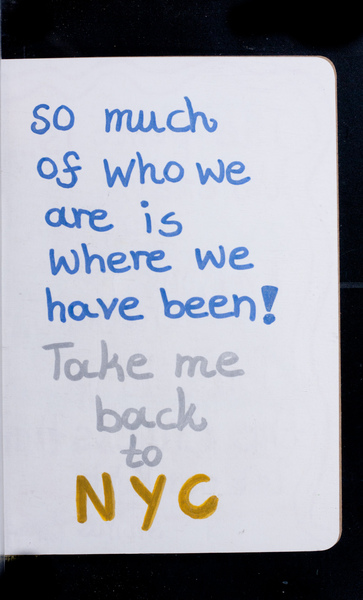 so much
of who we
are is
where we
have been!
Take me
back
to
NYC